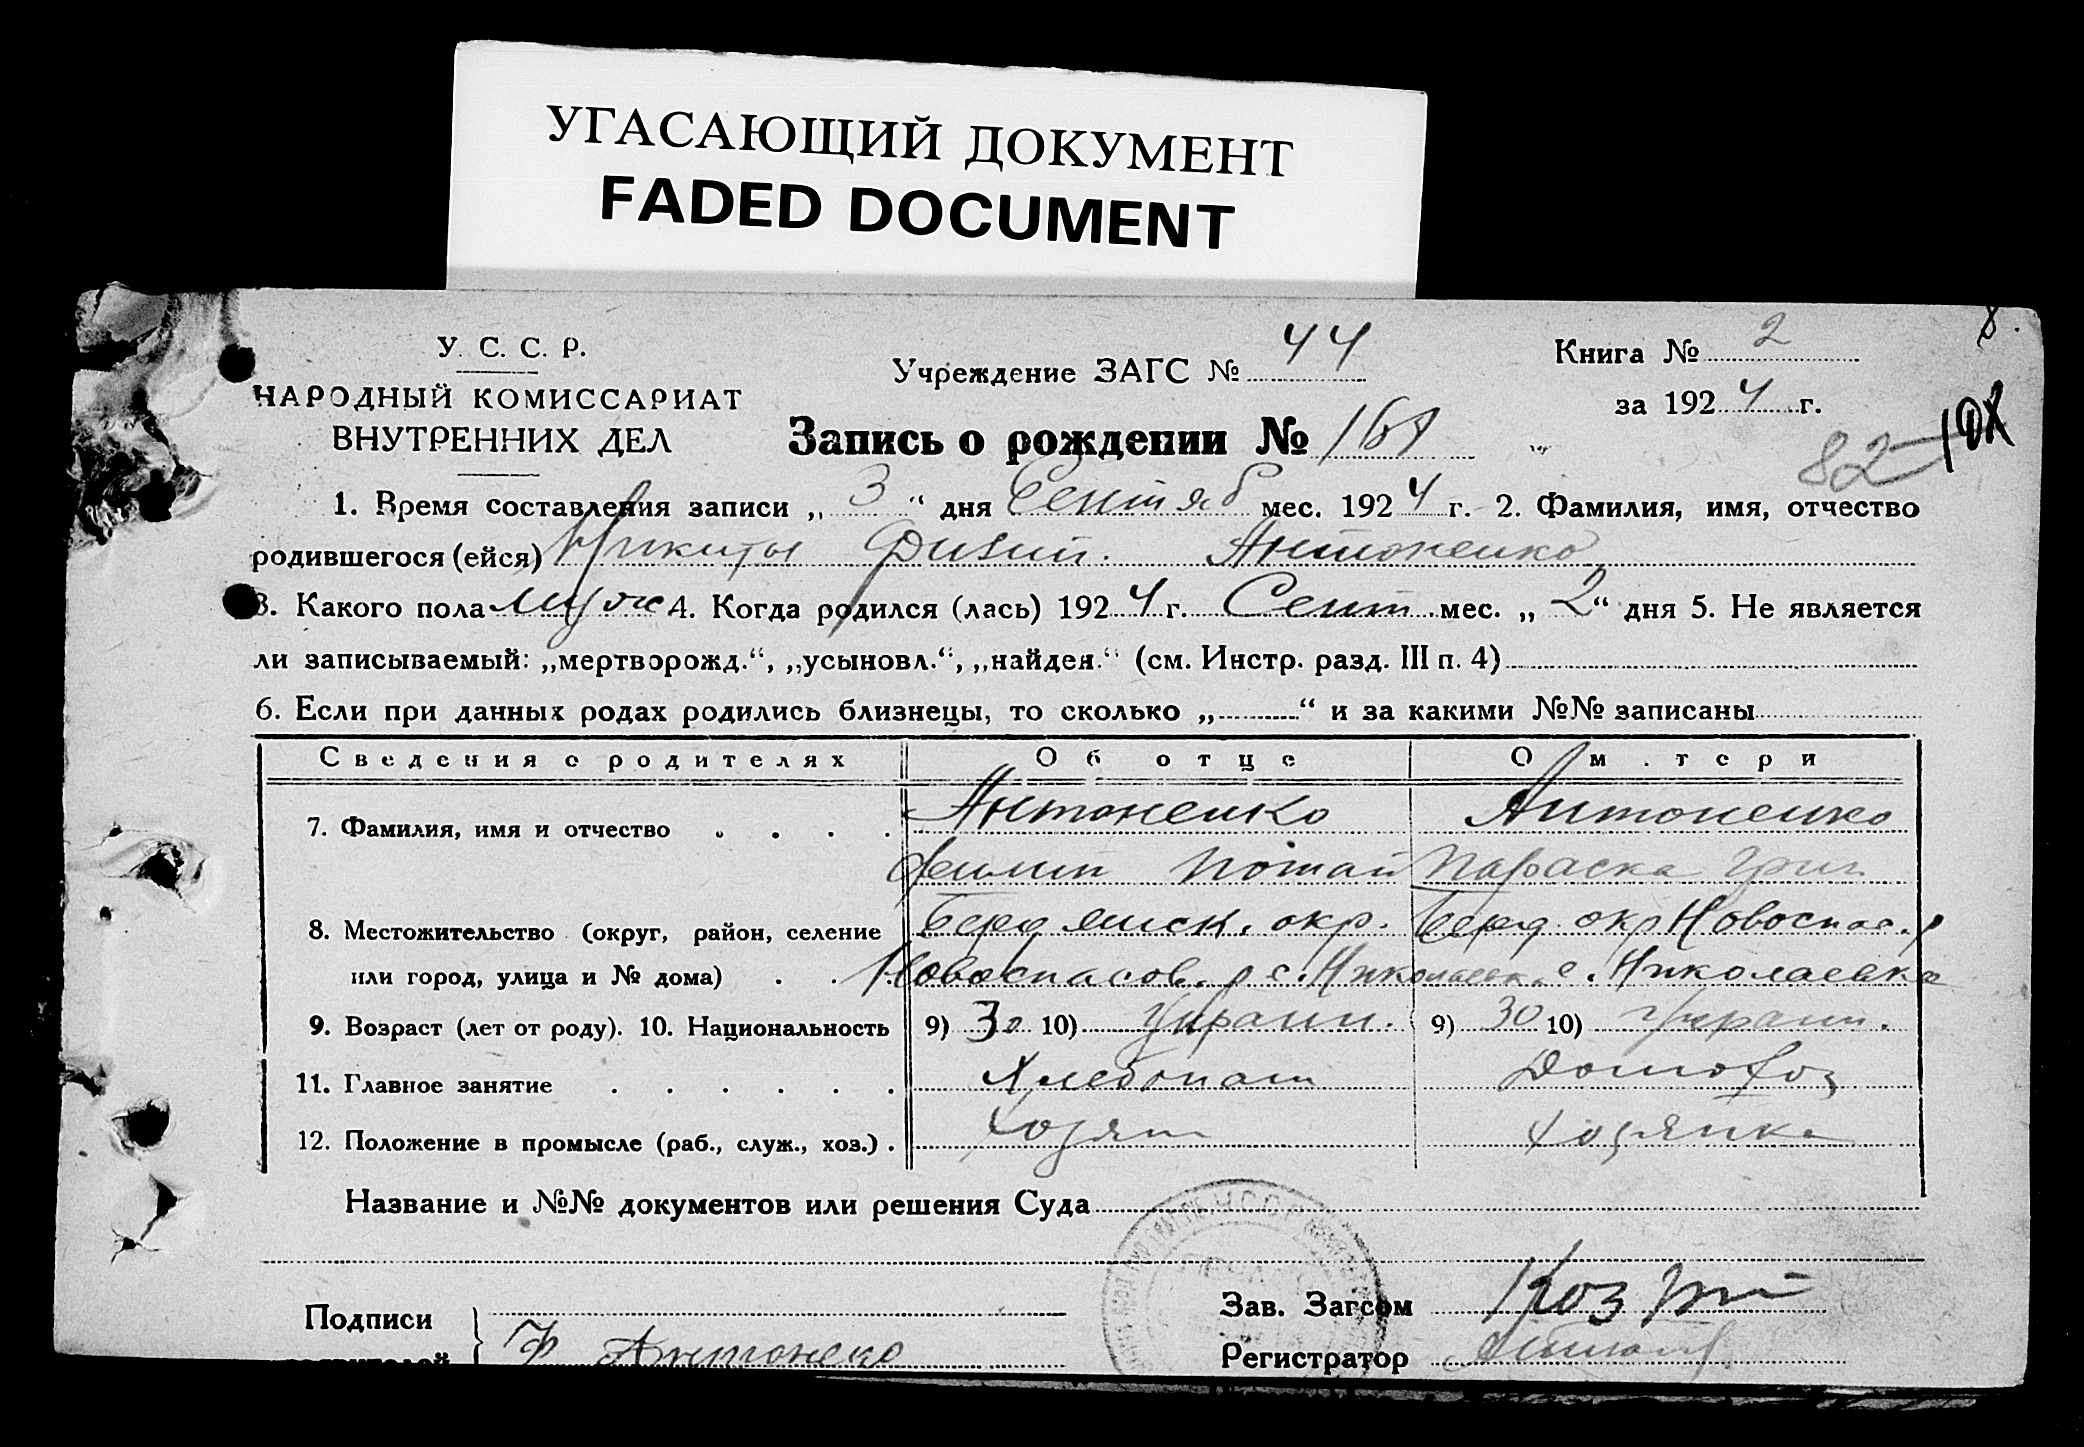 УГАСАЮЩИЙ ДОКУМЕНТ
FADED DOCUMENT
У. С. С. Р.
НАРОДНЫЙ КОМИССАРИАТ
ВНУТРЕННИХ ДЕЛ
Учреждение ЗАГС № 44
Книга № 2
за 1924 г.
Запись о рождении №
82
1. Время составления записи „ 3 “ дня Сентяб мес. 1924 г. 2. Фамилия, имя, отчество
родившегося (ейся) Никиты Антоненко
3. Какого пола муж 4. Когда родился (лась) 1924 г. Сент мес. „ 2 “ дня 5. Не является
ли записываемый: „мертворожд.“, „усыновл.“, „найден.“ (см. Инстр. разд. III п. 4)
6. Если при данных родах родились близнецы, то сколько „ “ и за какими №№ записаны
Сведения о родителях Об отце О м.тери
7. Фамилия, имя и отчество Антоненко Антоненко
Филип Потап Параска Григ
8. Местожительство (округ, район, селение Бердянск. окр. Берд. окр Новоспас. р
или город, улица и № дома) Новоспасов. р с. Николаевка с. Николаевка
9. Возраст (лет от роду). 10. Национальность 9) 30 10) Украин. 9) 30 10) Украин.
11. Главное занятие Хлебопаш Домохоз
12. Положение в промысле (раб., служ., хоз.) Хозяин Хозяйка
Название и №№ документов или решения Суда
Подписи
Ф Антоненко
Зав. Загсом
Регистратор